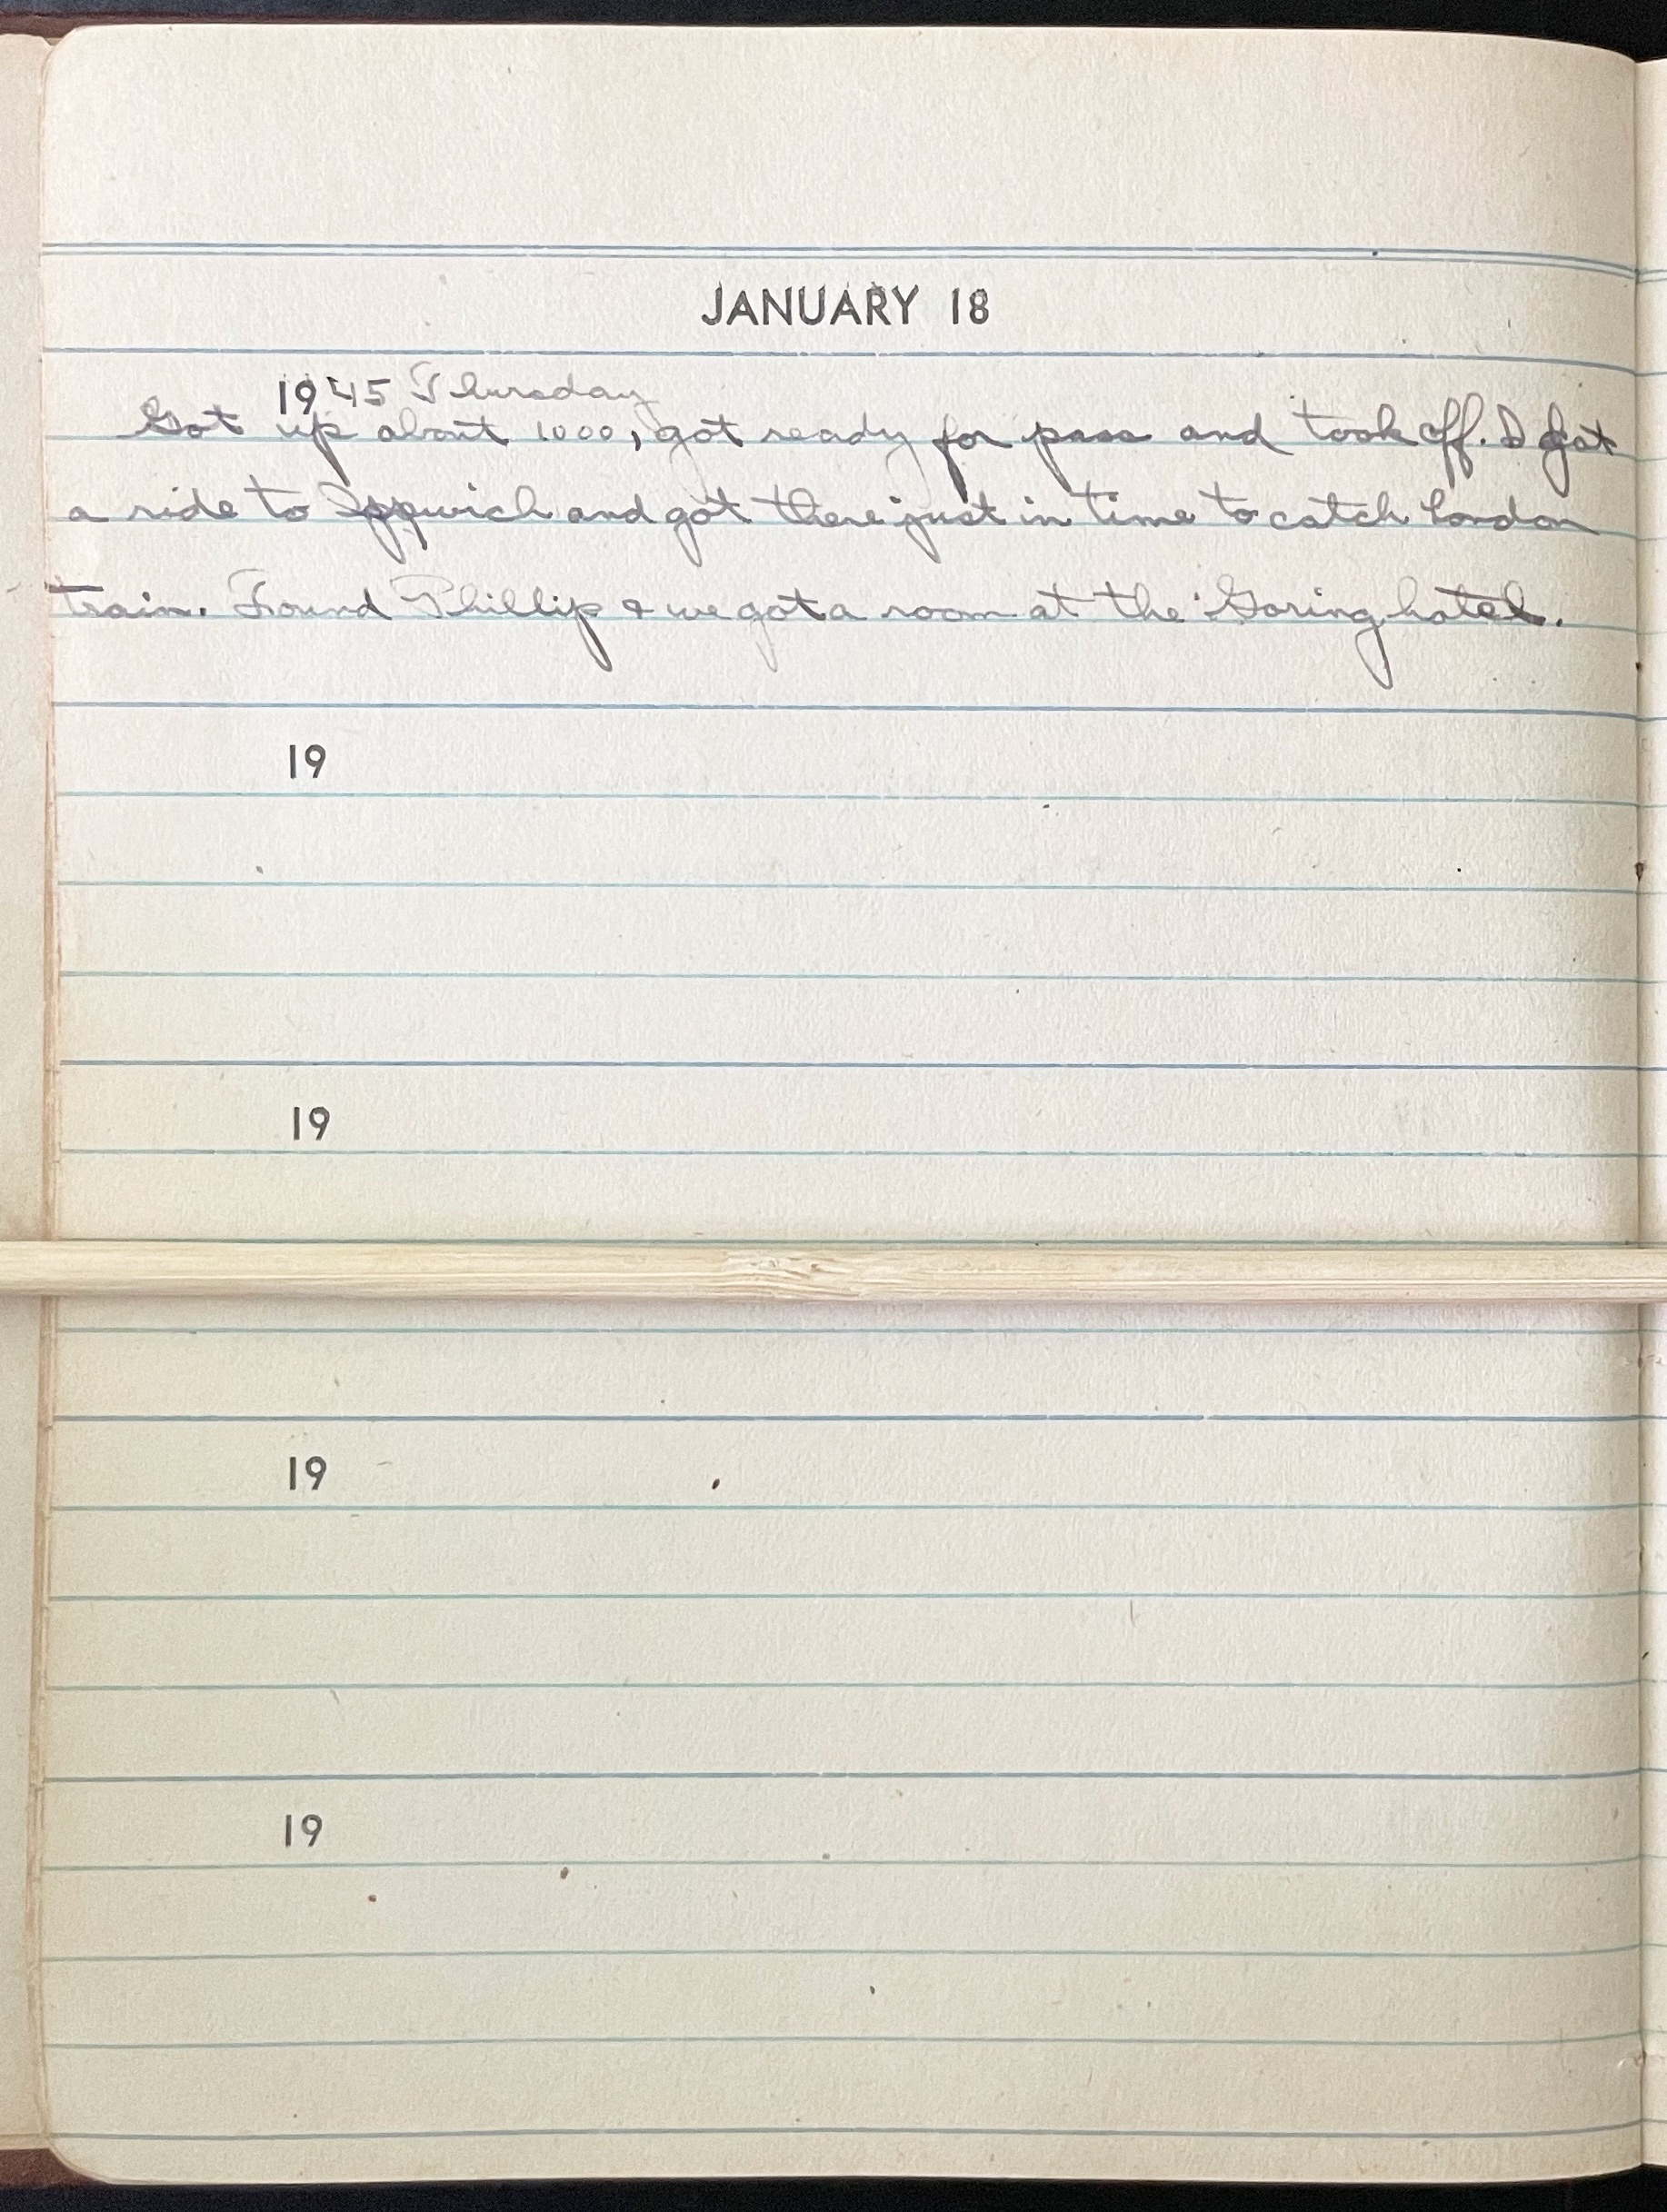 JANUARY 18
1945 Thursday
Got up about 1000, got ready for pass and took off. I got
a ride to Ippwich and got there just in time to catch London
train. Found Phillip & we got a room at the Goring hotel.
19
19
19
19